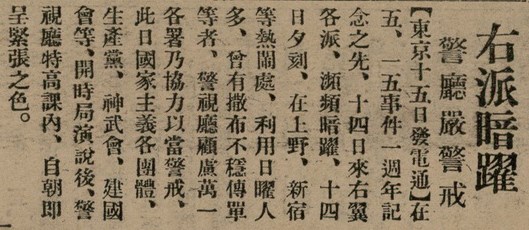 右派暗躍
警廳嚴警戒
【東京十五日發電通】在
五、一五事件一週年記
念之先、十四日來右翼
各派、瀕頻暗躍、十四
日夕刻、在上野、新宿
等熱鬧處、利用日曜人
多、曾有撒布不穩傳單
等者、警視廳顧慮萬一
各署乃協力以當警戒、
此日國家主義各團體、
生產黨、神武會、建國
會等、開時局演說後、警
視廳特高課內、自朝即
呈緊張之色。